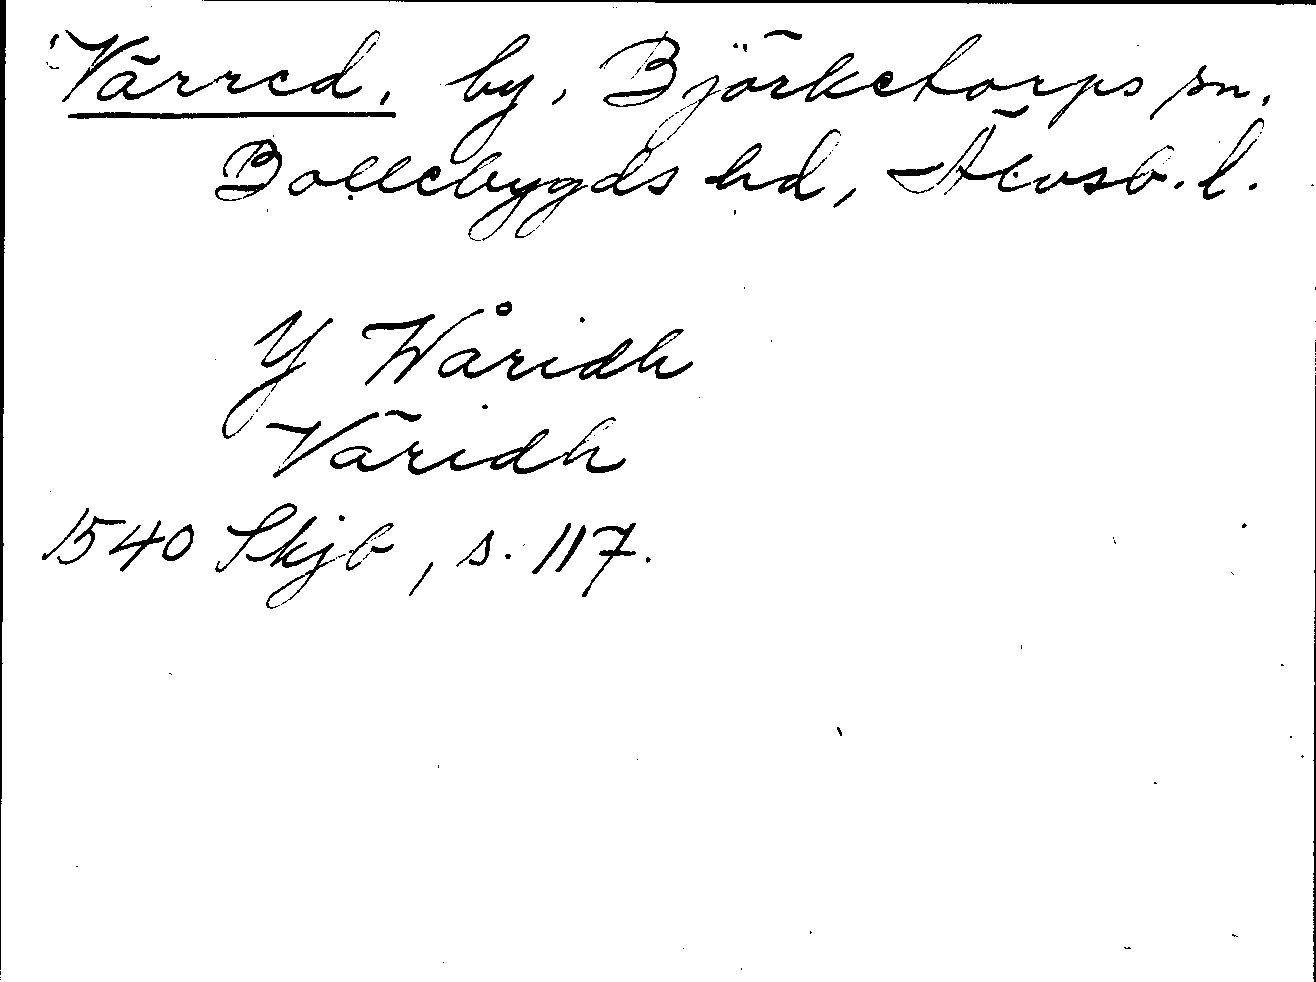 Värred, by, Björketorps sn,
Bollebygds hd, Älvsb. l.
Y Wåridh
Väridh
1540 Skjb, s. 117.